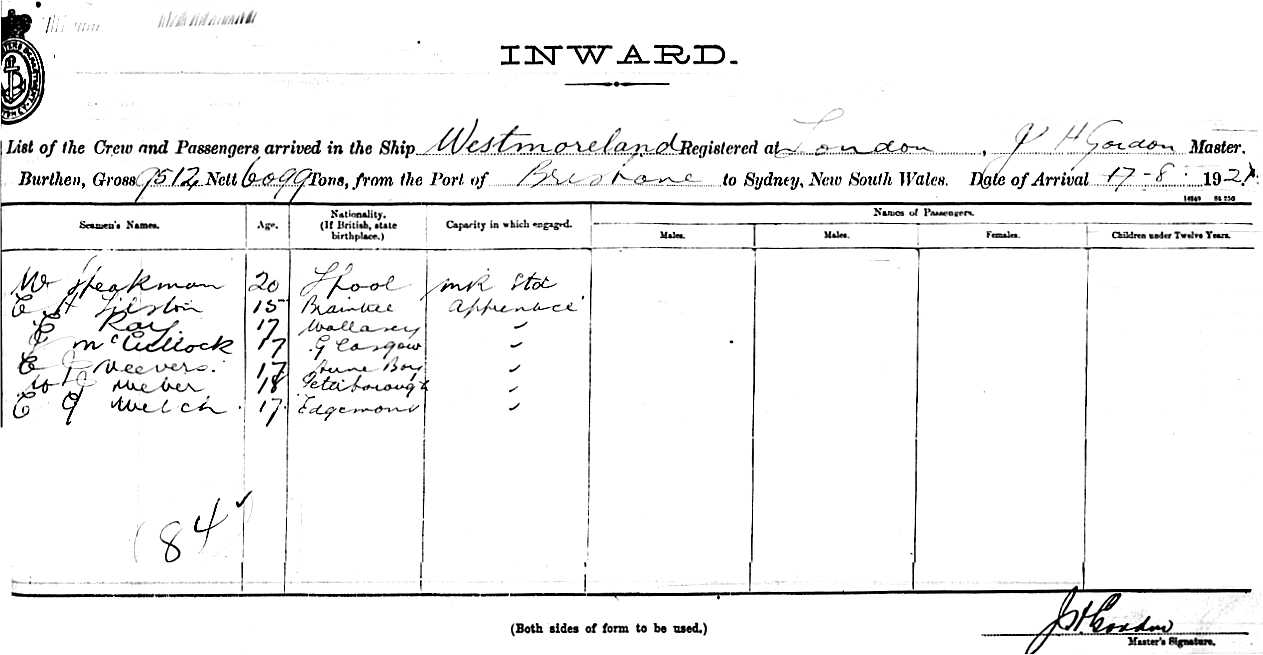 INWARD.
List of the Crew and Passengers arrived in the Ship Westmoreland Registered at London, J H Gordon Master,
Burthen, Gross 9512 Nett 6099 Tons, from the Port of Brisbane to Sydney, New South Wales. Date of Arrival 17-8- 192
Seamen's Names. Age. Nationality. (If British, state birthplace.) Capacity in which engaged. Names of Passengers.
Males. Males. Females. Children under Twelve Years.
W Speakman 20 L'pool mR Std
E H 15 Braintree Apprentice
E Ray 17 Wallasey "
McCullock 17 Glasgow "
E Meevers 17 "
W Weber 18 Peterborough "
E G Welch 17 Edgemond "
84
(Both sides of form to be used.)
J H Gordon
Master's Signature.